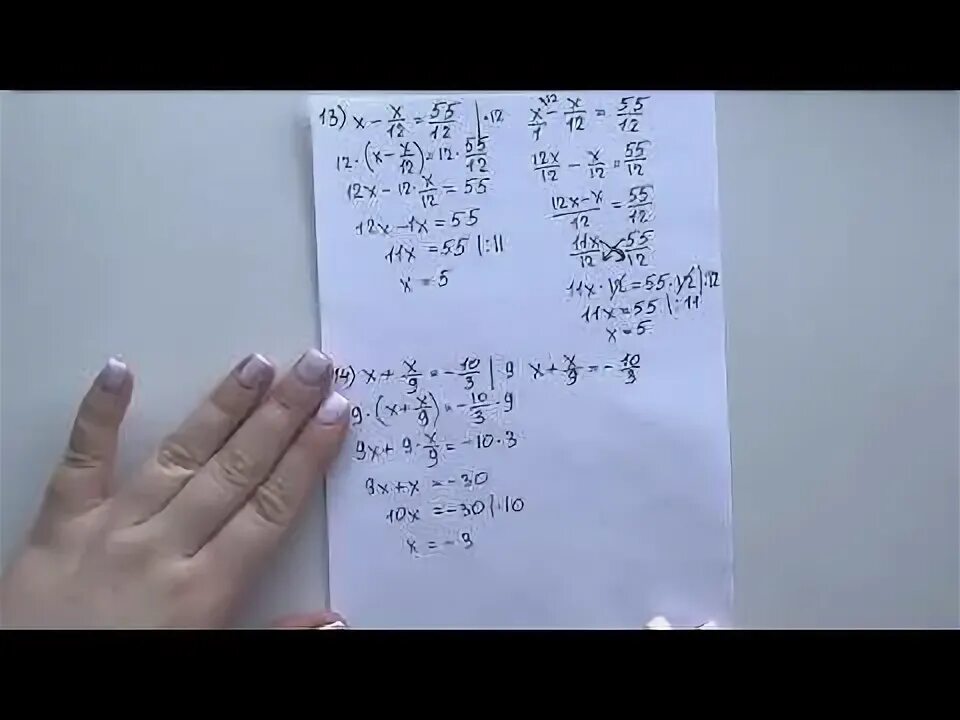 13) x - x/12 = 55/12 | ·12
12·(x - x/12) = 12·55/12
12x - 12·x/12 = 55
12x - 1x = 55
11x = 55 |:11
x = 5
x/1 ·12 - x/12 = 55/12
12x/12 - x/12 = 55/12
12x-x/12 = 55/12
11x/12 = 55/12
11x·12 = 55·12 |:12
11x = 55 |:11
x = 5
14) x + x/9 = -10/3 | 9
9·(x + x/9) = -10/3·9
9x + 9·x/9 = -10·3
9x + x = -30
10x = -30 |:10
x = -3
x + x/9 = -10/3